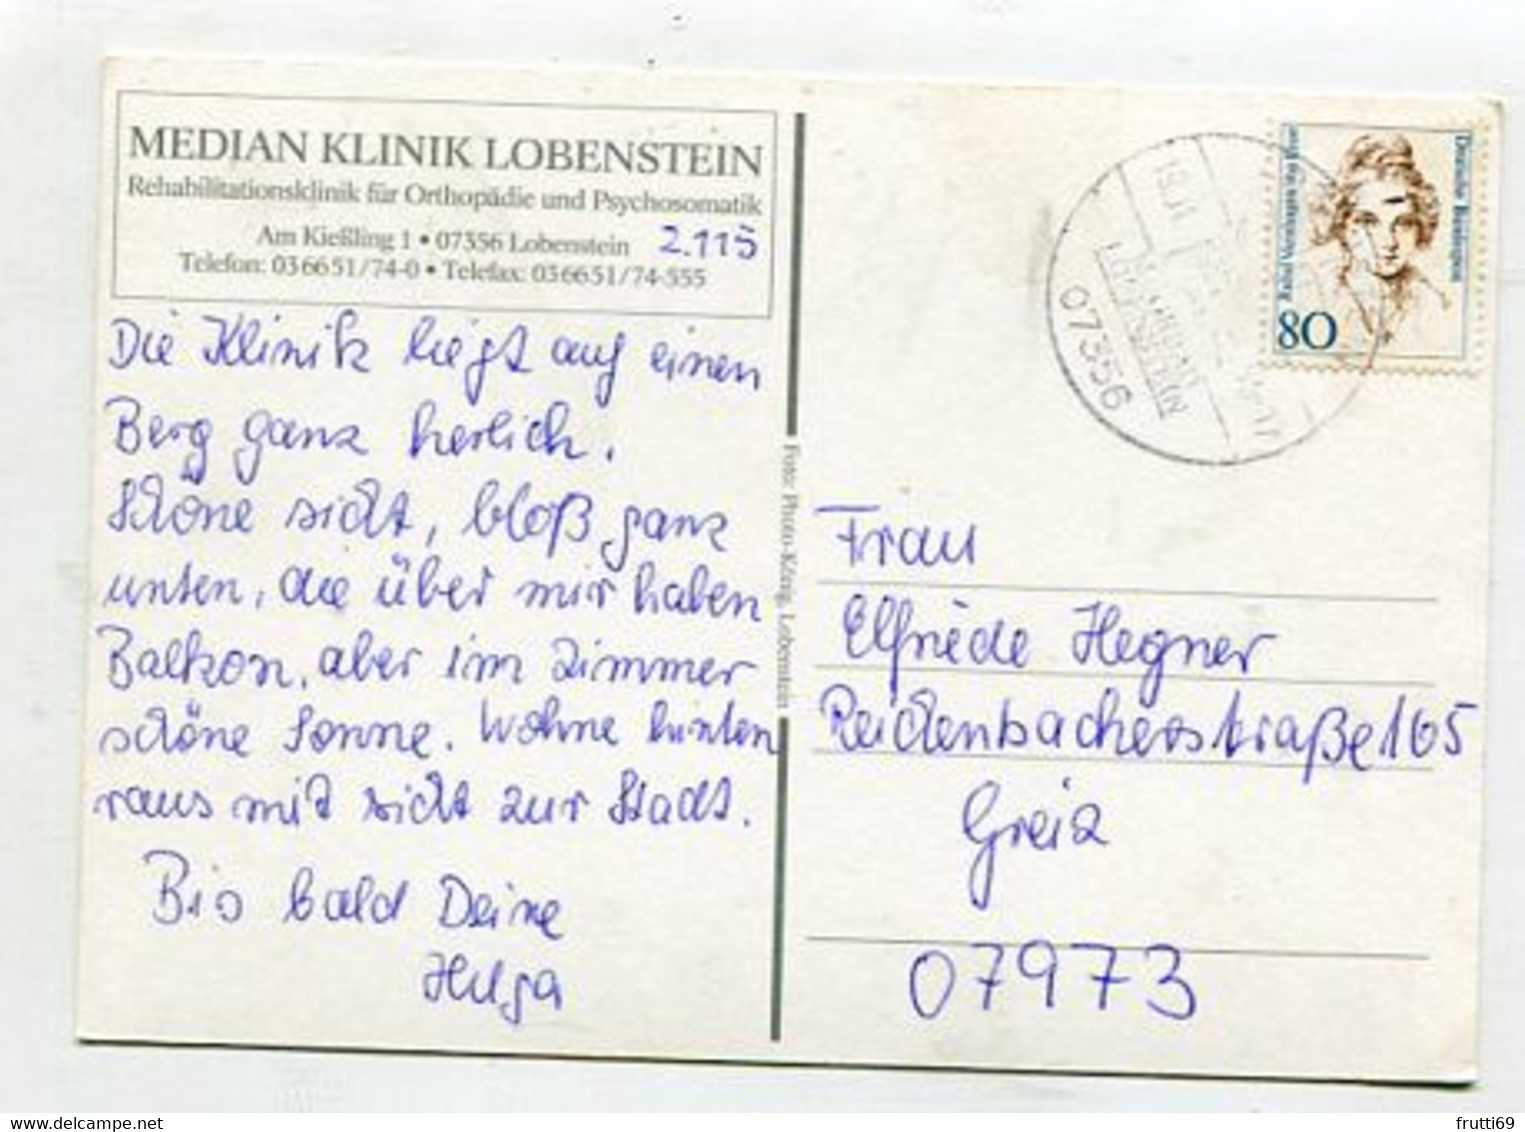 MEDIAN KLINIK LOBENSTEIN
Rehabilitationsklinik für Orthopädie und Psychosomatik
Am Kießling 1 • 07356 Lobenstein 2.115
Telefon: 036651/74-0 • Telefax: 036651/74-555
Die Klinik liegt auf einen
Berg ganz herlich.
Schöne sicht, bloß ganz
unten, die über mir haben
Balkon, aber im Zimmer
schöne Sonne. Wohne hinten
raus mit sicht zur Stadt.
Bis bald Deine
Helga
Foto: Photo-König, Lobenstein
07356
Deutsche Bundespost
80
Frau
Elfriede Hegner
Reichenbacherstraße 165
Greiz
07973
frutti69